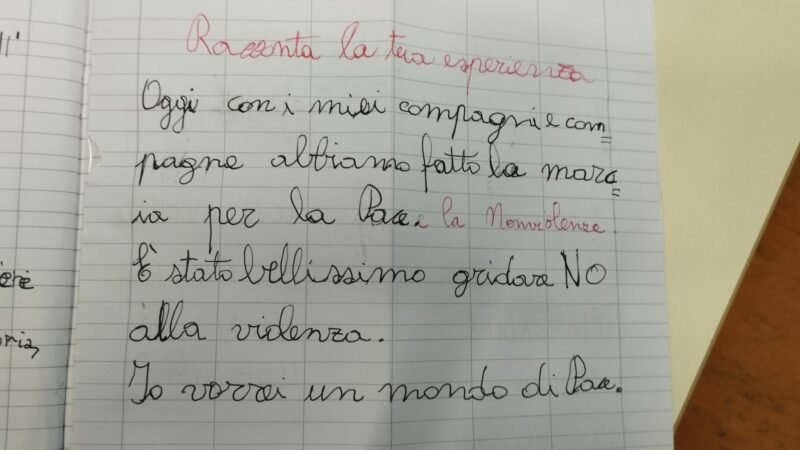 ll'
Racconta la tua esperienza
Oggi con i miei compagni e com=
pagne abbiamo fatto la marc=
ia per la Pace e la Nonviolenza.
È stato bellissimo gridare NO
alla violenza.
Io vorrei un mondo di Pace.